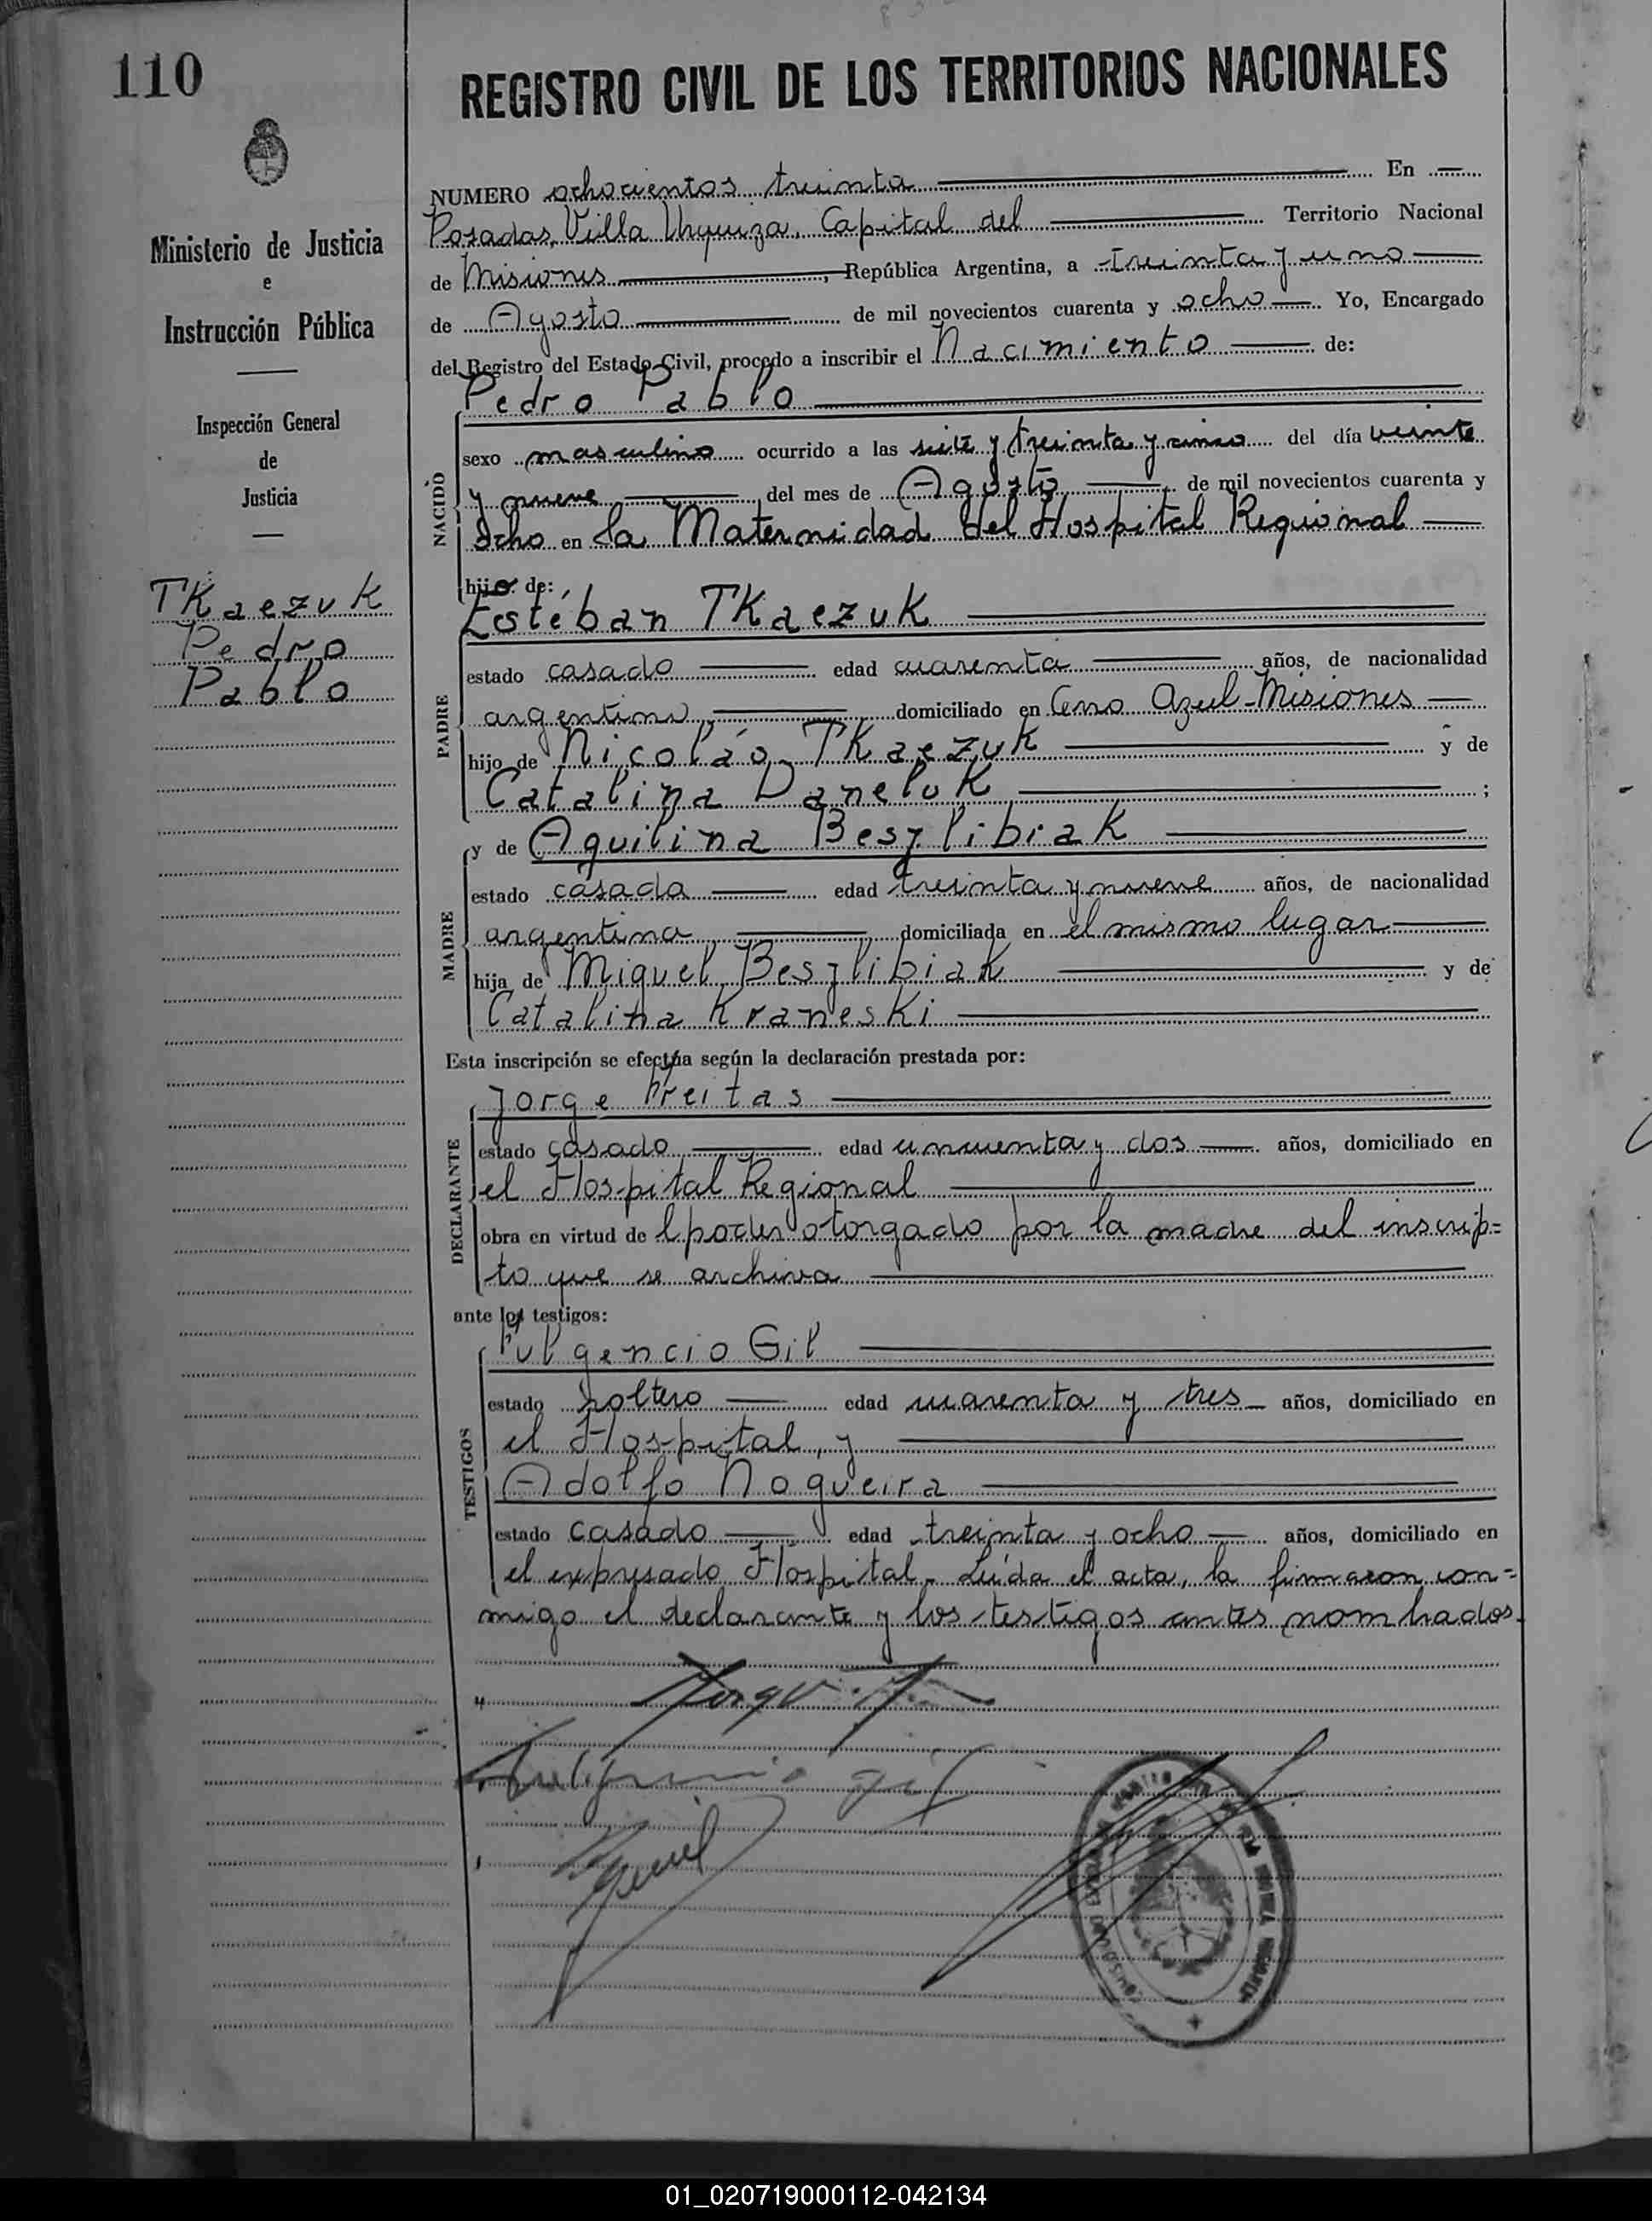 110
REGISTRO CIVIL DE LOS TERRITORIOS NACIONALES
Ministerio de Justicia
e
Instrucción Pública
Inspección General
de
Justicia
TKaezuk
Pedro
Pablo
NUMERO ochocientos treinta En
Posadas, Villa Urquiza, Capital del Territorio Nacional
de Misiones, República Argentina, a treinta y uno
de Agosto de mil novecientos cuarenta y ocho Yo, Encargado
del Registro del Estado Civil, procedo a inscribir el Nacimiento de:
Pedro Pablo
NACIDO
sexo masculino ocurrido a las siete y treinta y cinco del día veinte
y nueve, del mes de Agosto, de mil novecientos cuarenta y
ocho en la Maternidad del Hospital Regional
hijo de:
Estéban TKaezuk
PADRE
estado casado edad cuarenta años, de nacionalidad
argentino, domiciliado en Cerro Azul-Misiones
hijo de Nicoláo TKaezuk y de
Catalina Daneluk ;
y de Aquilina Beszlibiak
MADRE
estado casada edad treinta y nueve años, de nacionalidad
argentina, domiciliada en el mismo lugar
hija de Miguel Beszlibiak y de
Catalina Kraneski
Esta inscripción se efectúa según la declaración prestada por:
Jorge Freitas
DECLARANTE
estado casado edad cincuenta y dos años, domiciliado en
el Hospital Regional
obra en virtud de l poder otorgado por la madre del inscrip=
to que se archiva
ante los testigos:
Fulgencio Gil
TESTIGOS
estado soltero edad cuarenta y tres años, domiciliado en
el Hospital, y
Adolfo Nogueira
estado casado edad treinta y ocho años, domiciliado en
el expresado Hospital. Leída el acta, la firmaron con=
migo el declarante y los testigos antes nombrados.
Fulgencio Gil
01_020719000112-042134